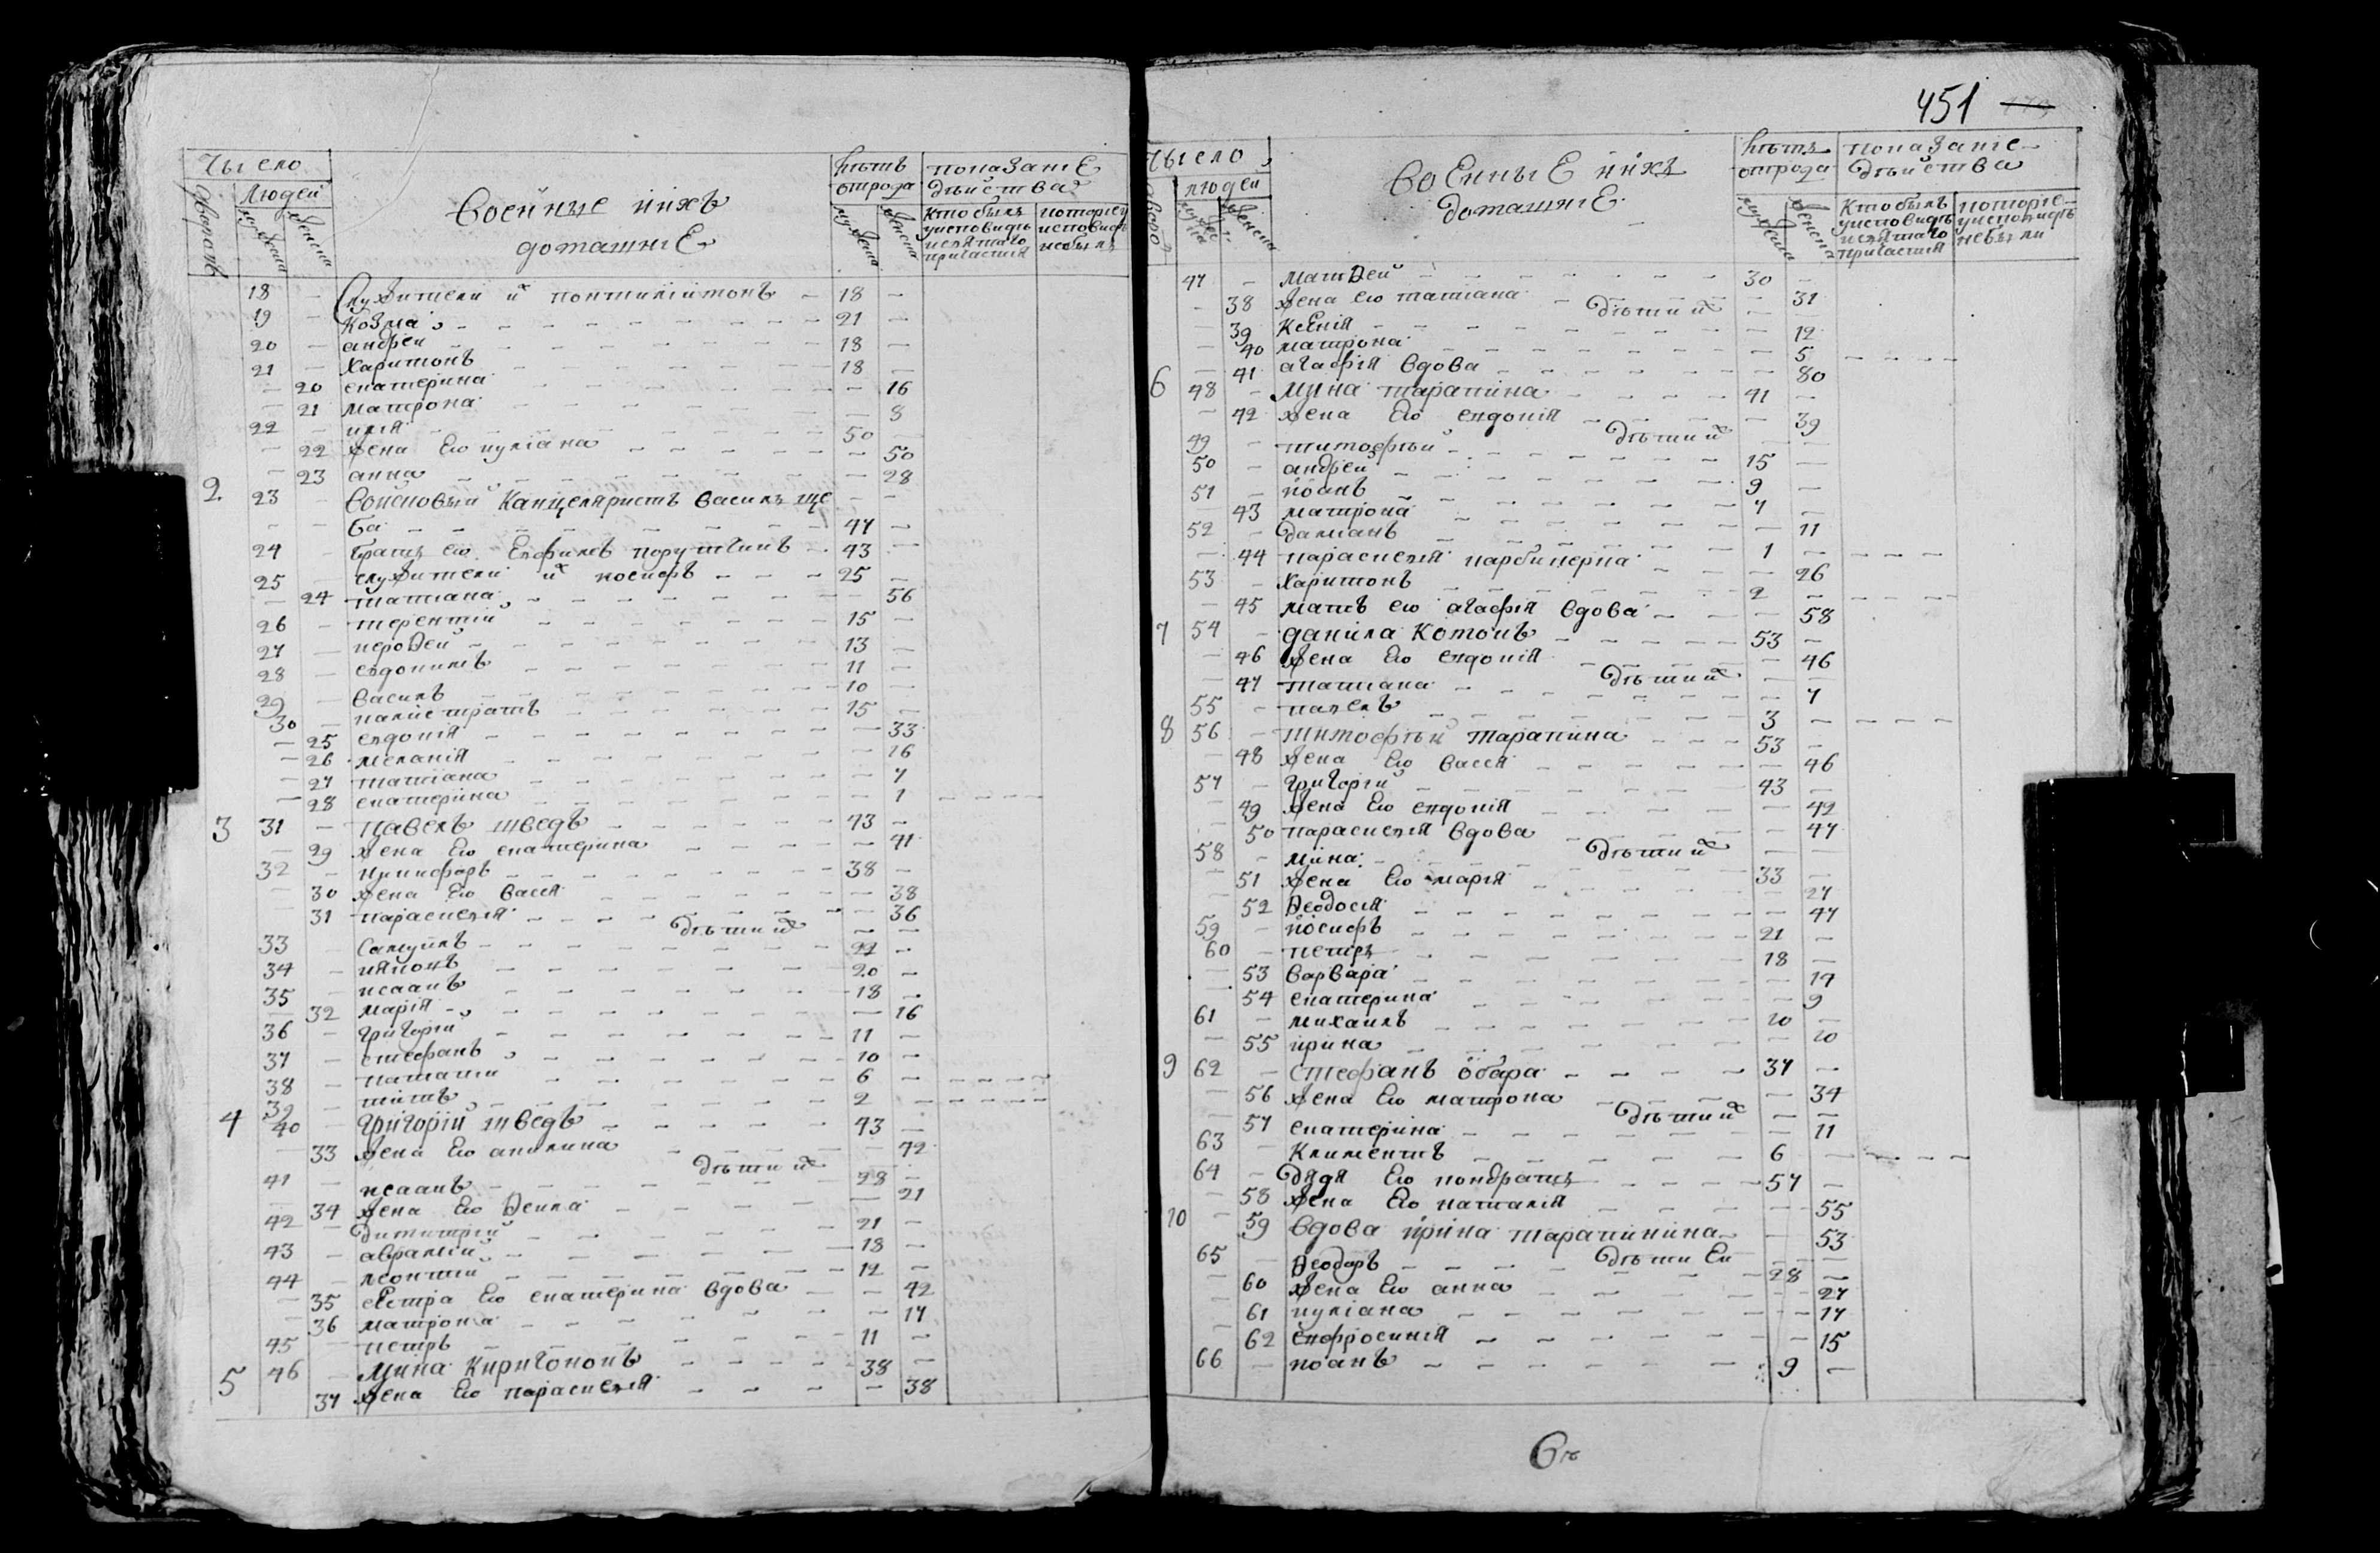 451
Число
Людей
лѣтъ отрода
показание дѣйства
Военные и ихъ домашние
мужеска
женска
кто былъ у исповиди и святаго причастия
которие у исповиди не были
18 – Служители их понтилиимонъ – 18 –
19 – Козма – 21 –
20 – андрей – 18 –
21 – Харитонъ – 18 –
– 20 екатерина – 16
– 21 матрона – 8
22 – илия – 50 –
– 22 жена его иулиана – 50
– 23 анна – 28
2 23 – Войсковый Канцеляристъ василь ще – –
– – ба – 47 –
24 – братъ его Евфимъ поручикъ – 43 –
25 – служители их иосифъ – 25 –
– 24 татиана – 56
26 – терентий – 15 –
27 – иерофей – 13 –
28 – евдокимъ – 11 –
29 – василь – 10 –
30 – калистратъ – 15 –
– 25 евдокия – 33
– 26 мелания – 16
– 27 татиана – 7
– 28 екатерина – 1
3 31 – Павелъ шведъ – 43 –
– 29 жена его екатерина – 41
32 – никифоръ – 38 –
– 30 жена его васса – 38
31 параскевия – 36
дѣти их – –
33 – Самуилъ – 22 –
34 – иякокъ – 20 –
35 – исаакъ – 18 –
– 32 мария – 16
36 – григорий – 11 –
37 – стефанъ – 10 –
38 – игнатий – 6 –
39 – титъ – 2 –
4 40 – Григорий шведъ – 43 –
– 33 жена его акилина – 42
дѣти их
41 – исаакъ – 28 –
34 жена его фекла – 21
42 – димитрий – 21 –
43 – аврамий – 18 –
44 – леонтий – 12 –
– 35 сестра его екатерина вдова – 42
– 36 матрона – 17
45 – петръ – 11 –
5 46 – Мина Киригококъ – 38 –
37 жена его параскевия – 38
Число
людей
Военные и ихъ домашние
лѣтъ отрода
показание дѣйства
мужеска
женска
кто былъ у исповиди и святаго причастия
которие у исповиди небыли
47 – матфей – 30 –
– 38 жена его татиана – 31
дѣти их
– 39 ксения – 12
– 40 матрона – 5
– 41 агафия вдова – 80
6 48 – Мина тарапина – 41 –
– 42 жена его евдокия – 39
дѣти их
49 – тимофѣй – 15 –
50 – андрей – 9 –
51 – иоанъ – 7 –
– 43 матрона – 11
52 – дамианъ – 1 –
– 44 параскевия – 26
53 – харитонъ – 2 –
– 45 мать его агафия вдова – 58
7 54 – данила Котокъ – 53 –
– 46 жена его евдокия – 46
дѣти их
– 47 татиана – 7
55 – павелъ – 3 –
8 56 – тимофѣй тарапина – 53 –
– 48 жена его васса – 46
57 – григорий – 43 –
– 49 жена его евдокия – 42
– 50 параскевия вдова – 47
дѣти их
58 – мина – 33 –
– 51 жена его мария – 27
– 52 феодосия – 47
59 – иосифъ – 21 –
60 – петръ – 18 –
– 53 варвара – 17
– 54 екатерина – 9
61 – михаилъ – 10 –
– 55 ирина – 10
9 62 – стефанъ обара – 37 –
– 56 жена его матрона – 34
дѣти их
– 57 екатерина – 11
63 – Климентъ – 6 –
64 – дядя его кондратъ – 57 –
– 58 жена его наталия – 55
10 – 59 вдова ирина тарапинина – 53
дѣти Ей
65 – феодоръ – 28 –
– 60 жена его анна – 27
– 61 иулиана – 17
– 62 евфросиния – 15
66 – иоанъ – 9 –